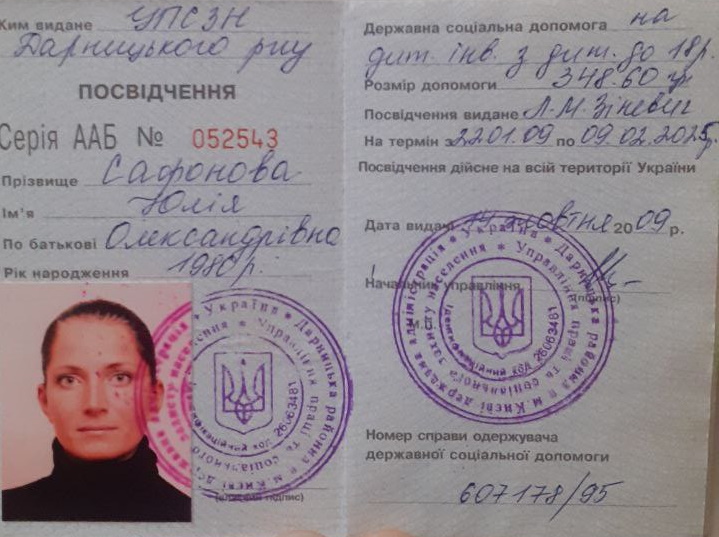 Ким видане УПСЗН
Дарницького рну
ПОСВІДЧЕННЯ
Серія ААБ № 052543
Прізвище Сафонова
Ім'я Юлія
По батькові Олександрівна
Рік народження 1980 р.
(власний підпис)
Державна соціальна допомога на
дит. інв. з дит. до 18 р.
Розмір допомоги 348.60
Посвідчення видане Л.М. Зіневич
На термін з 22.01.09 по 09.02.2025р.
Посвідчення дійсне на всій території України
Дата видачі 14 жовтня 2009 р.
Начальник управління
(підпис)
М.П.
Україна * Дарницька районна в м. Києві державна адміністрація *
Управління праці та соціального захисту населення *
Ідентифікаційний код 26063481
Номер справи одержувача
державної соціальної допомоги
607178/95